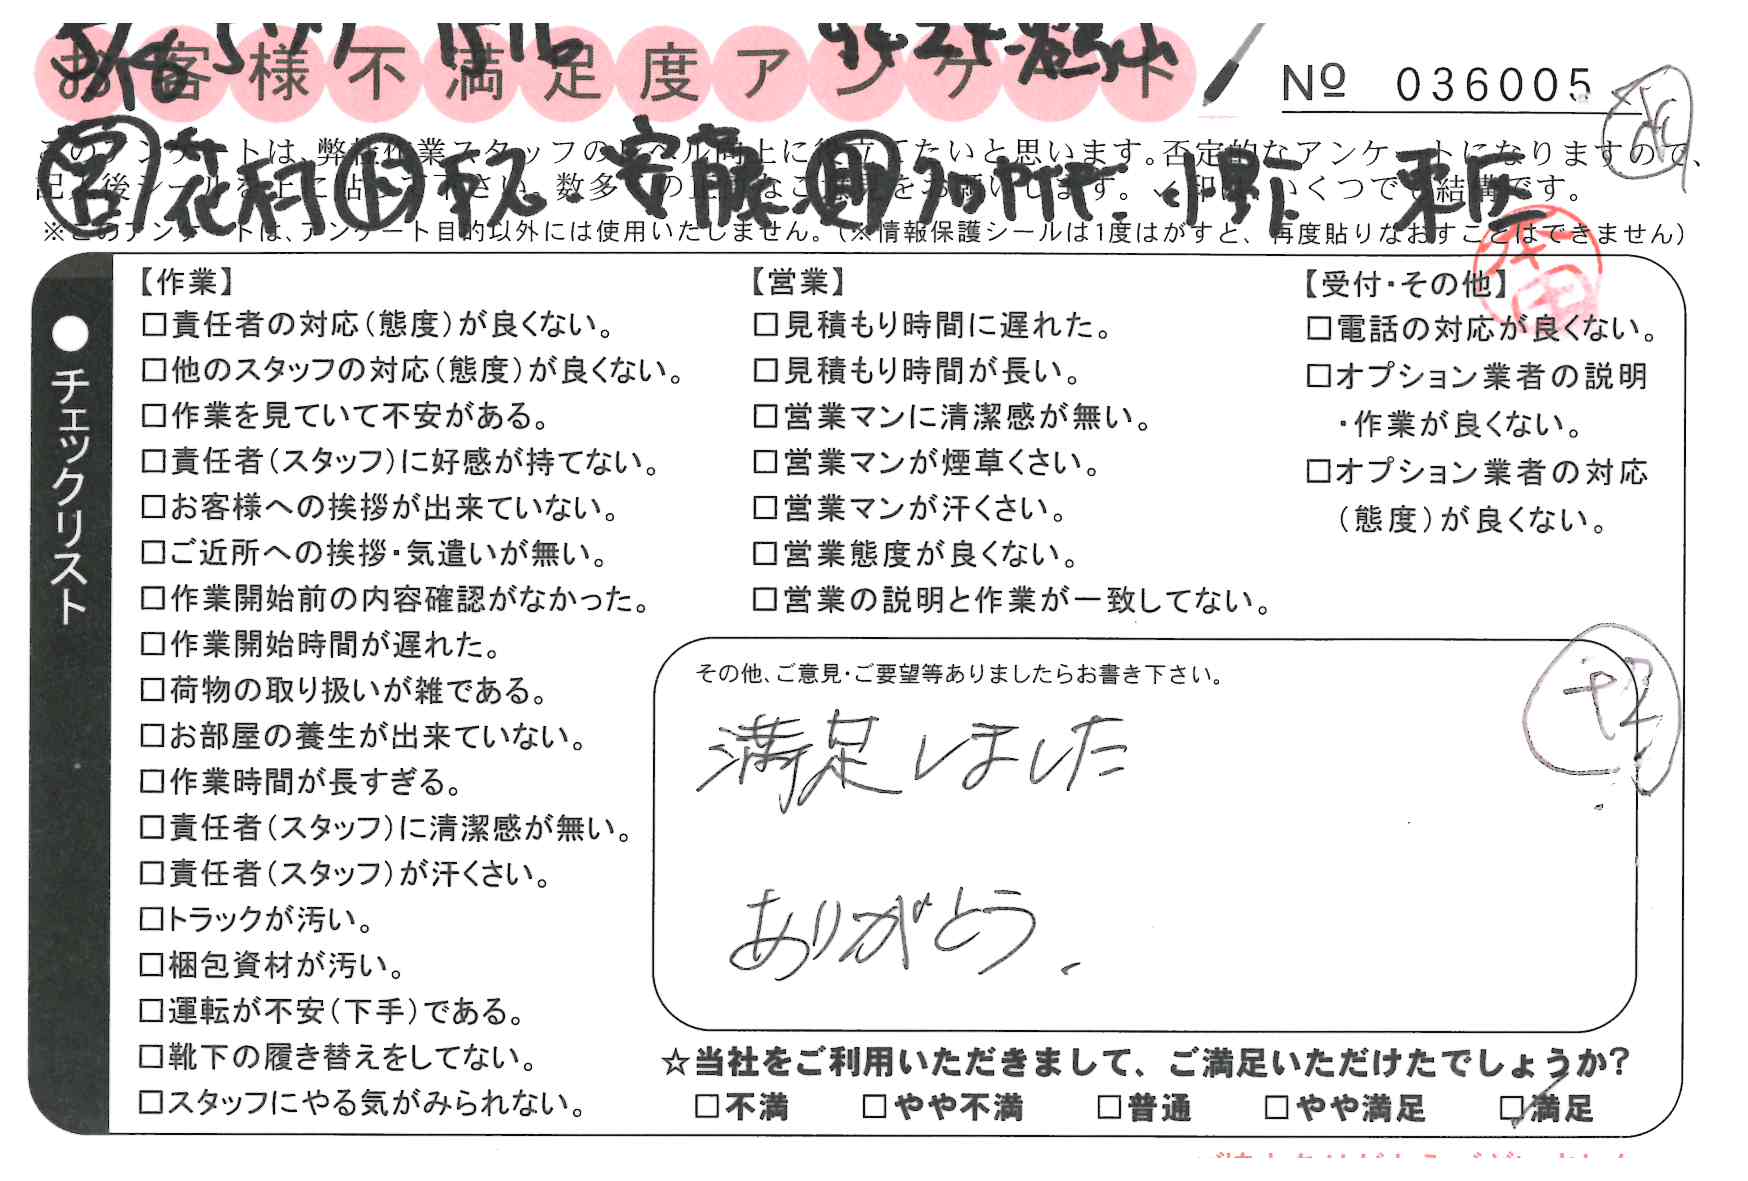 お客様不満足度アンケート
№ 036005
このアンケートは、弊社作業スタッフのレベル向上に役立てたいと思います。否定的なアンケートになりますので、
※このアンケートは、アンケート目的以外には使用いたしません。(※情報保護シールは1度はがすと、再度貼りなおすことはできません)
●チェックリスト
【作業】
□責任者の対応(態度)が良くない。
□他のスタッフの対応(態度)が良くない。
□作業を見ていて不安がある。
□責任者(スタッフ)に好感が持てない。
□お客様への挨拶が出来ていない。
□ご近所への挨拶・気遣いが無い。
□作業開始前の内容確認がなかった。
□作業開始時間が遅れた。
□荷物の取り扱いが雑である。
□お部屋の養生が出来ていない。
□作業時間が長すぎる。
□責任者(スタッフ)に清潔感が無い。
□責任者(スタッフ)が汗くさい。
□トラックが汚い。
□梱包資材が汚い。
□運転が不安(下手)である。
□靴下の履き替えをしてない。
□スタッフにやる気がみられない。
【営業】
□見積もり時間に遅れた。
□見積もり時間が長い。
□営業マンに清潔感が無い。
□営業マンが煙草くさい。
□営業マンが汗くさい。
□営業態度が良くない。
□営業の説明と作業が一致してない。
【受付・その他】
□電話の対応が良くない。
□オプション業者の説明
・作業が良くない。
□オプション業者の対応
(態度)が良くない。
その他、ご意見・ご要望等ありましたらお書き下さい。
満足しました
ありがとう.
☆当社をご利用いただきまして、ご満足いただけたでしょうか?
□不満 □やや不満 □普通 □やや満足 □満足